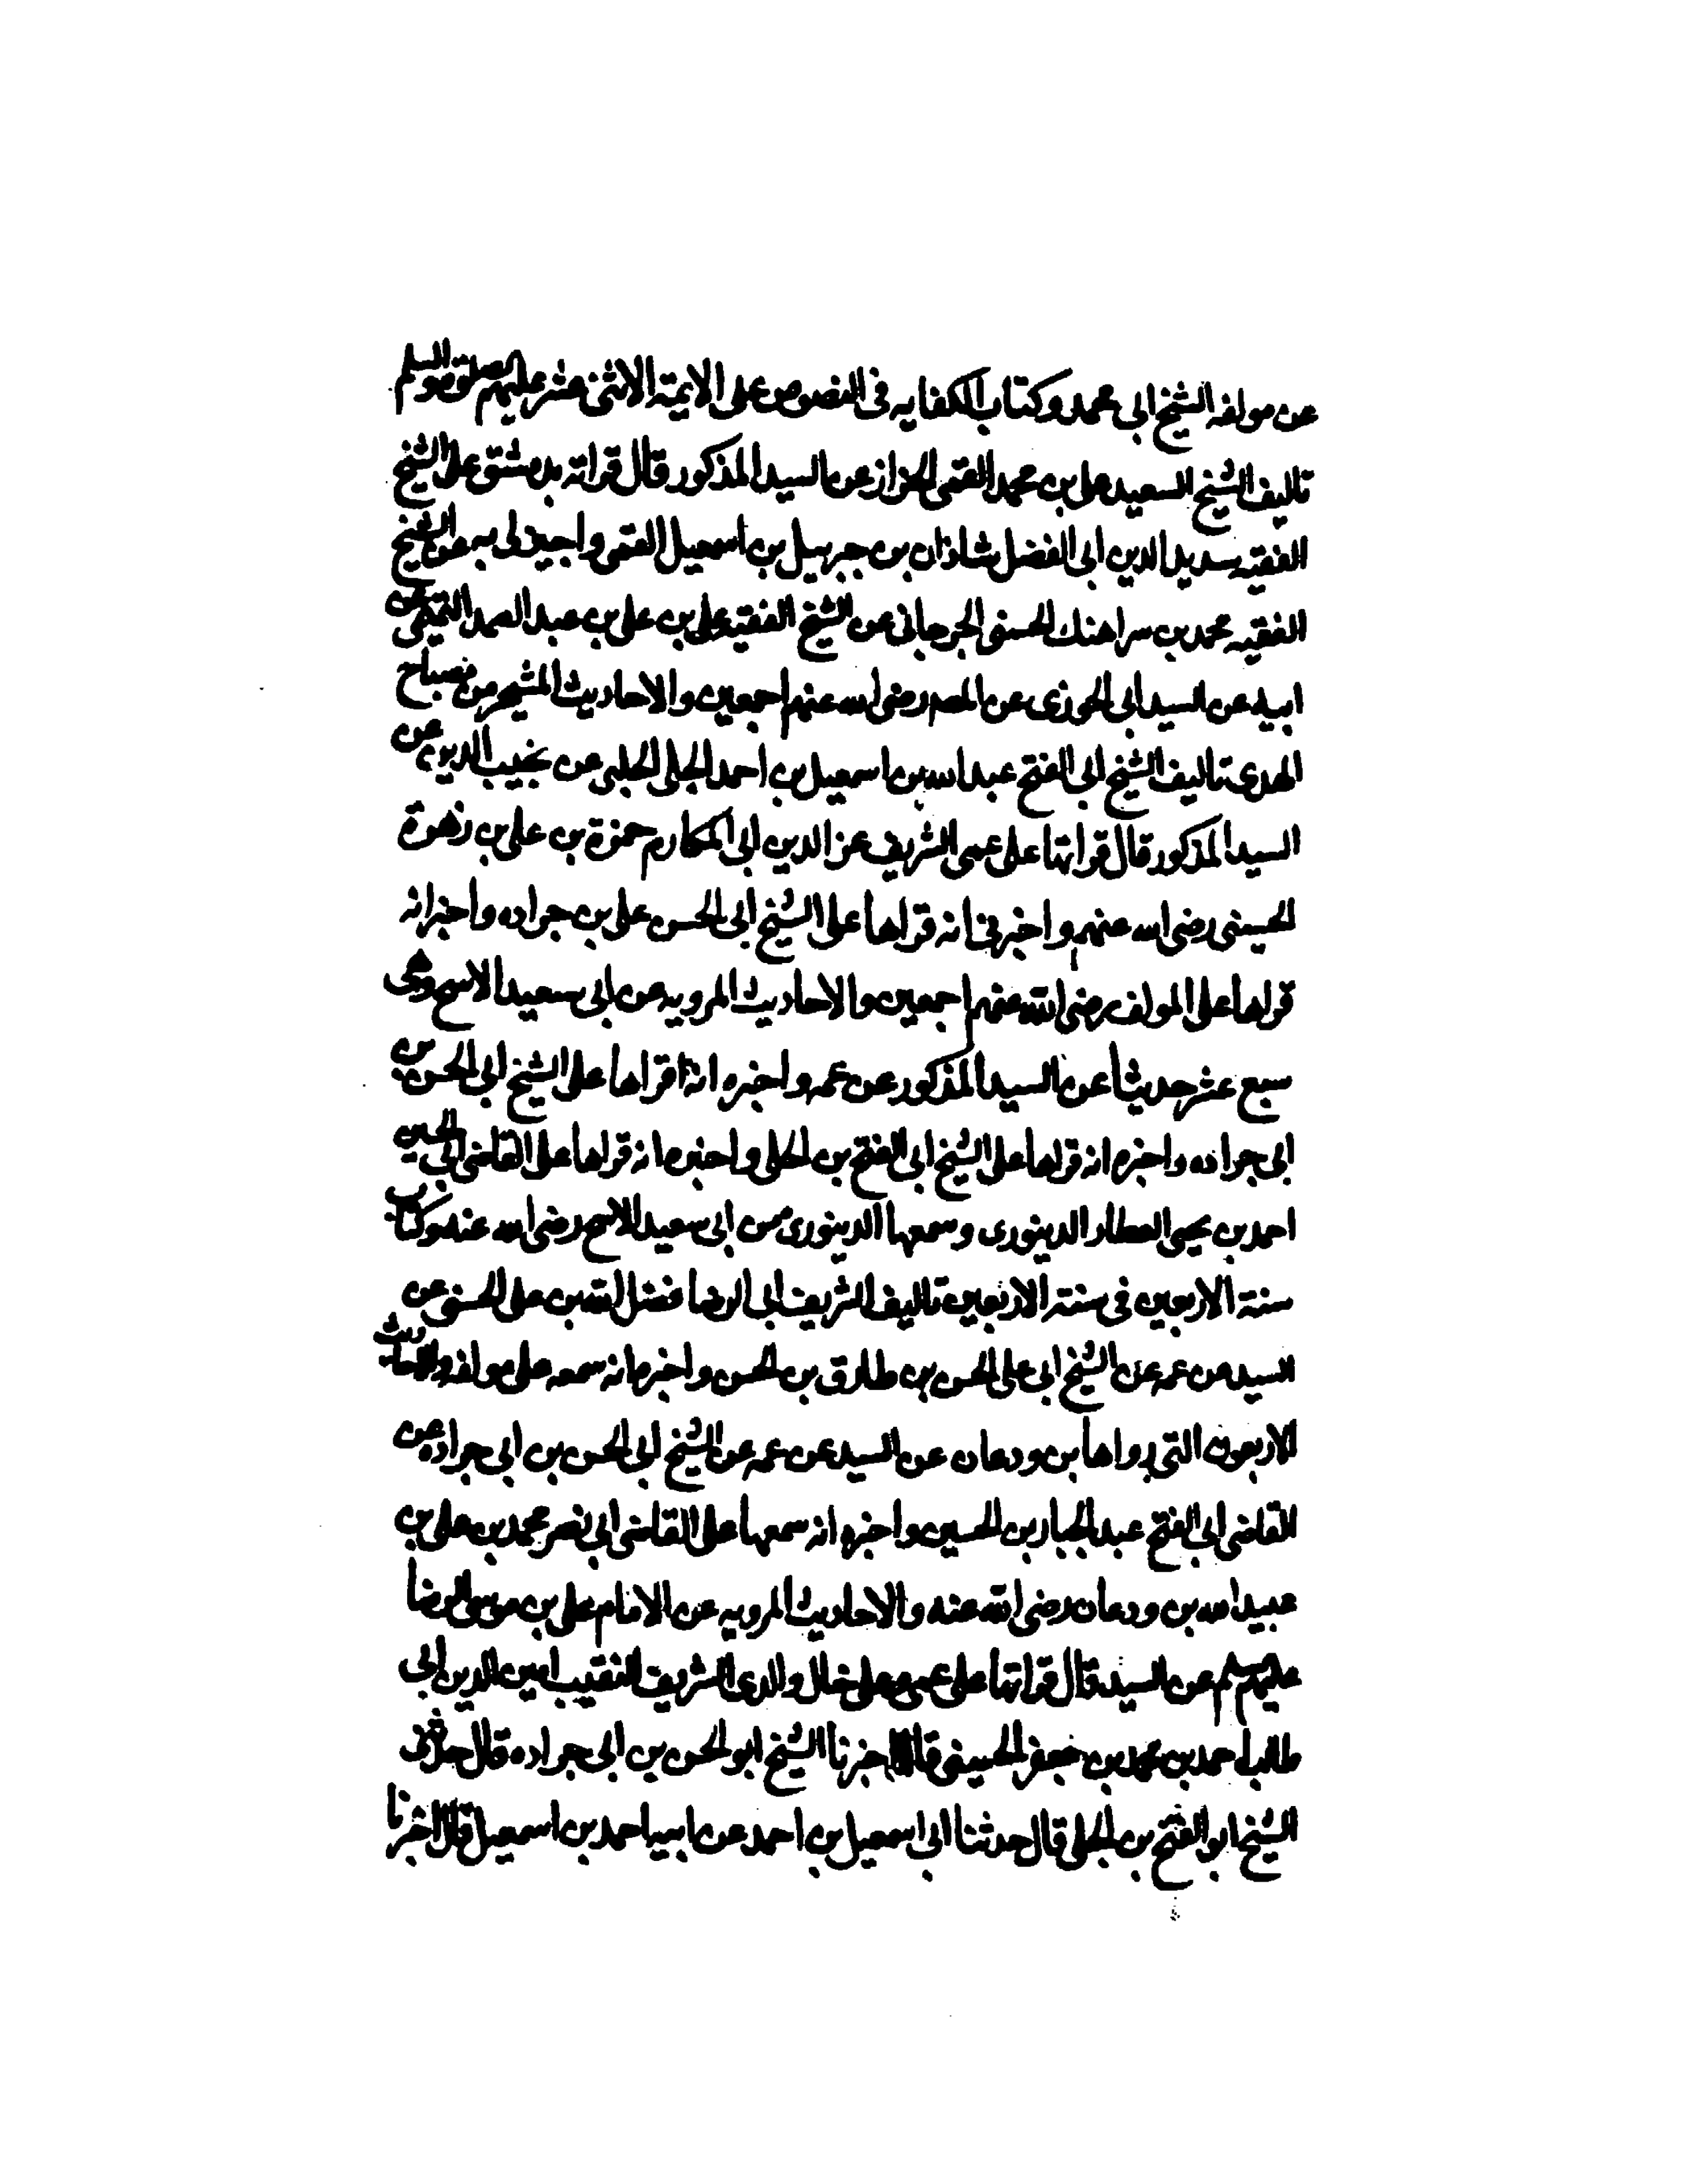 عن مولفه الشيخ ابى محمد وكتاب الكفايه فى النصوص على الايمة الاثنى عشر عليهم الصلوة والسلم
تاليف الشيخ السعيد على بن محمد القمى الخزاز عن السيد المذكور قال قراته بدمشق على الشيخ
الفقيه سديد الدين ابى الفضل شاذان بن جبرييل بن اسمعيل القمى واجيز لى به عن الشيخ
الفقيه محمد بن سراهنك الحسنى الجرجانى عن الشيخ الفقيه على بن على بن عبد الصمد التميمى عن
ابيه عن السيد ابى الحوزى عن المصـ رضى الله عنهم اجمعين والاحاديث من مصباح
الهدى تاليف الشيخ ابى الفتح عبد الله بن اسمعيل بن احمد الجلى الحلبى عن نجيب الدين عن
السيد المذكور قال قراتها على عمى الشريف عز الدين ابى المكارم حمزة بن على بن زهرة
الحسينى رضى الله عنهم واخبرنى انه قراها على الشيخ ابى الحسن على بن جراده واخبرانه
قراها على المولف رضى الله عنهم اجمعين والاحاديث المرويه عن ابى سعيد الاشج وهى
سبع عشر حديثا عن السيد المذكور عن عمه واخبره انه قراها على الشيخ ابى الحسن بن
ابى جراده واخبره انه قراها على الشيخ ابى الفتح بن الجلى واخبره انه قراها على القاضى ابى الحسين
احمد بن يحيى العطار الدينورى وسمعها الدينورى من ابى سعيد الاشج رضى الله عنه وكتاب
سنة الاربعين فى سنة الاربعين تاليف الشريف ابى الرضا فضل الله بن على الحسنى عن
السيد عن عمه عن الشيخ ابى على الحسن بن طارق بن الحسن واخبره انه سمعه على مولفه والاحاديث
الاربعون التى رواها بن ودعان عن السيد عن عمه عن الشيخ ابى الحسن بن ابى جراده عن
القاضى ابى الفتح عبد الجبار بن الحسين واخبره انه سمعها على القاضى ابى نصر محمد بن على بن
عبيد الله بن ودعان رضى الله عنه والاحاديث المرويه عن الامام على بن موسى الرضا
عليهم سلم عن السيد قال قراتها على عمى وعلى خال والدى الشريف النقيب امين الدين ابى
طالب احمد بن محمد بن جعفر الحسينى قالا اخبرنا الشيخ ابو الحسن بن ابى جراده قال حدثنى
الشيخ ابو الفتح بن الجلى قال حدثنا ابى اسمعيل بن احمد عن ابيه احمد بن اسمعيل قال اخبرنا